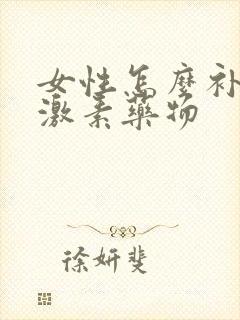 女性怎麼补
激素藥物
徐妍斐